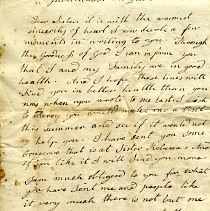 Dear Sister it is with the warmest
sincerity of heart I now devote a few
moments in writing to you through
the goodness of God I can inform you
that I and my Family are in good
health and I hope these lines will
find you in better health than you
was when you wrote to me last
you would make me a visit
this summer and see if it would not
help you I have sent you some
that is at Sister Rebecca's and
if you like it I will send you more
I am much obliged to you for what
you have sent me and people like
it very much there is not but one